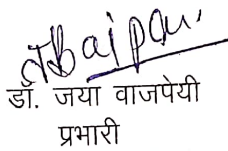 डॉ. जया वाजपेयी
प्रभारी